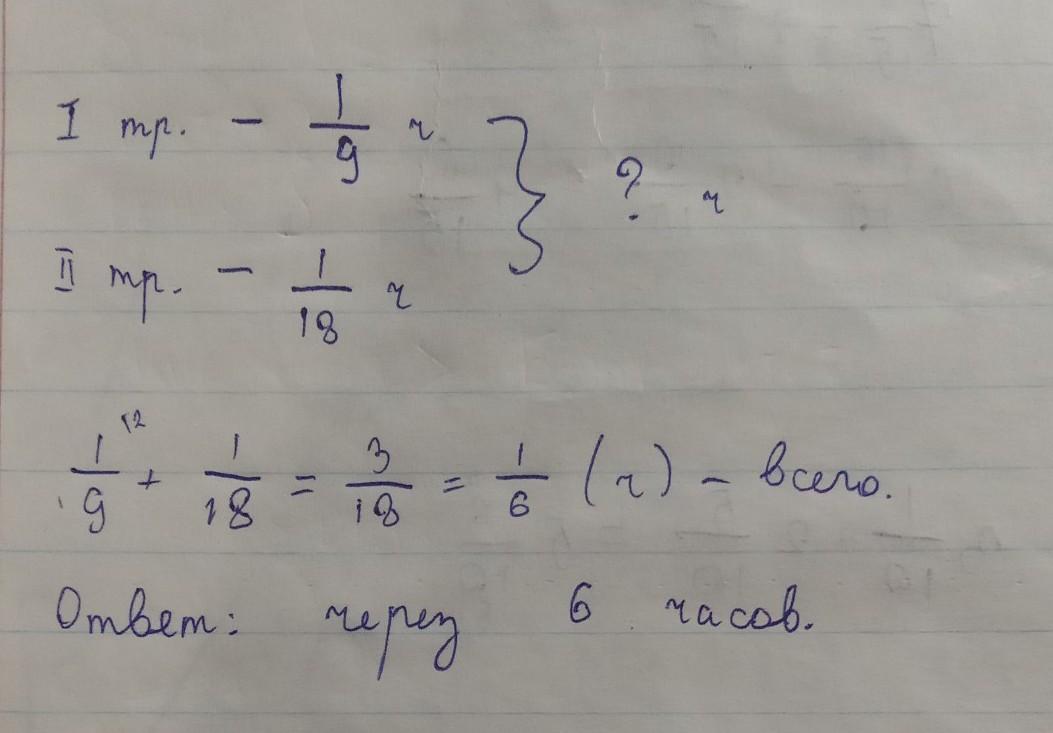 I тр. - 1/9 ч } ? ч
II тр. - 1/18 ч
1/9 \2 + 1/18 = 3/18 = 1/6 (ч) - всего.
Ответ: через 6 часов.